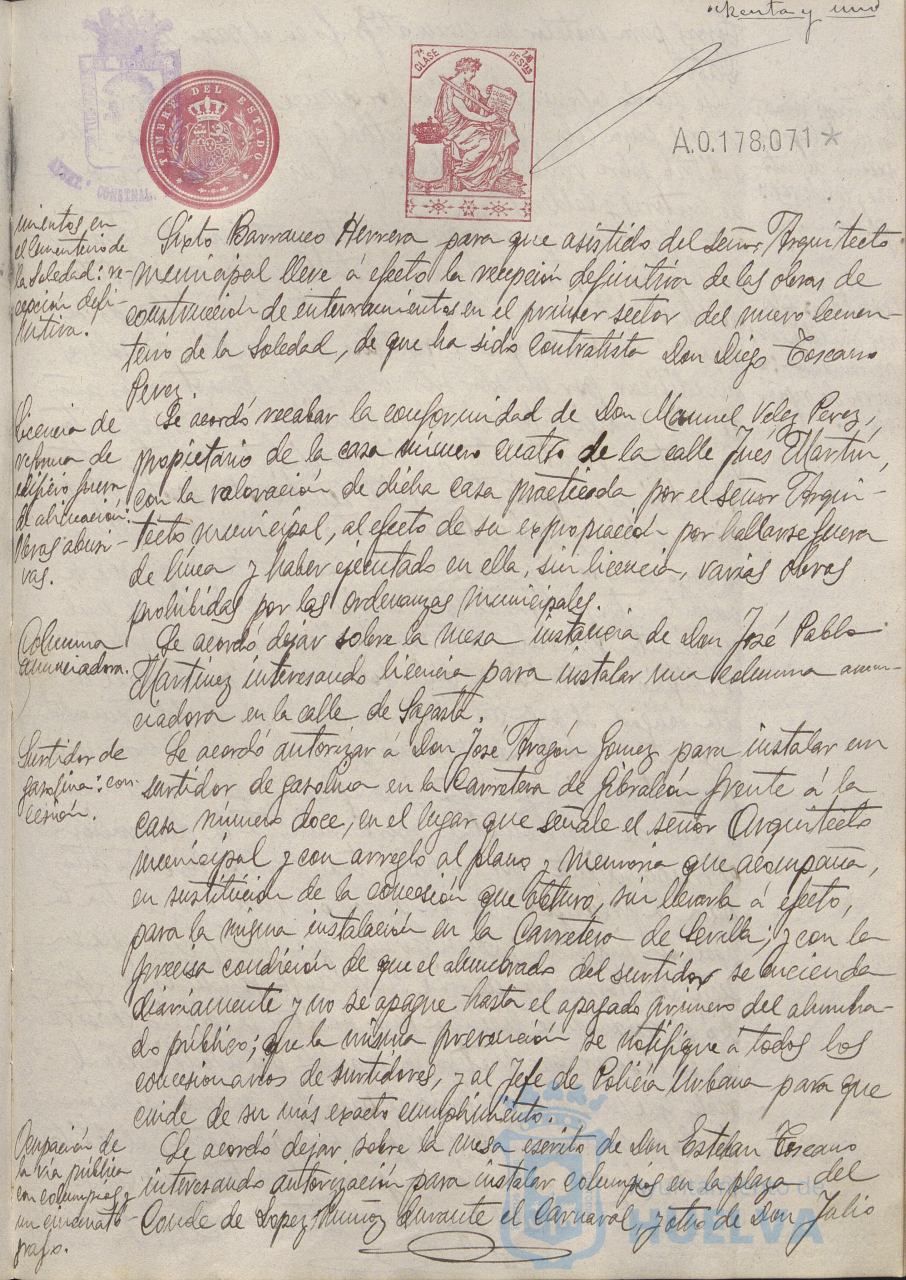 ochenta y uno
TIMBRE DEL ESTADO
7ª CLASE
PESTAS
A.0.178,071*
mientos en
el Cementerio de
la Soledad: re-
cepción defi-
nitiva.
Sixto Barranco Herrera para que asistido del señor Arquitecto
municipal lleve á efecto la recepción definitiva de las obras de
construcción de enterramientos en el primer sector del nuevo Cemen-
terio de la Soledad, de que ha sido contratista Don Diego Toscano
Perez.
Licencia de
reforma de
edificio fuera
de alineación.
Obras abusi-
vas.
Se acordó recabar la conformidad de Don Manuel Velez Perez,
propietario de la casa número cuatro de la calle Inés Martín,
con la valoración de dicha casa practicada por el señor Arqui-
tecto municipal, al efecto de su expropiación por hallarse fuera
de línea y haber ejecutado en ella, sin licencia, varias obras
prohibidas por las ordenanzas municipales.
Columna
anunciadora.
Se acordó dejar sobre la mesa instancia de Don José Pablo
Martinez interesando licencia para instalar una columna anun-
ciadora en la calle de Sagasta.
Surtidor de
gasolina: con-
cesión.
Se acordó autorizar á Don José Aragón Gomez para instalar un
surtidor de gasolina en la Carretera de Gibraleón frente á la
casa número doce, en el lugar que señale el señor Arquitecto
municipal y con arreglo al plano y memoria que acompaña,
en sustitución de la concesión que obtuvo, sin llevarla á efecto,
para la misma instalación en la Carretera de Sevilla; y con la
precisa condición de que el alumbrado del surtidor se encienda
diariamente y no se apague hasta el apagado primero del alumbra-
do público; que la misma prevención se notifique á todos los
concesionarios de surtidores, y al Jefe de Policía Urbana para que
cuide de su más exacto cumplimiento.
Ocupación de
la vía pública
con columpios y
un cinemató-
grafo.
Se acordó dejar sobre la mesa escrito de Don Esteban Toscano
interesando autorización para instalar columpios en la plaza del
Conde de Lopez Muñoz durante el Carnaval, y otro de Don Julio
Ayuntamiento de
HUELVA